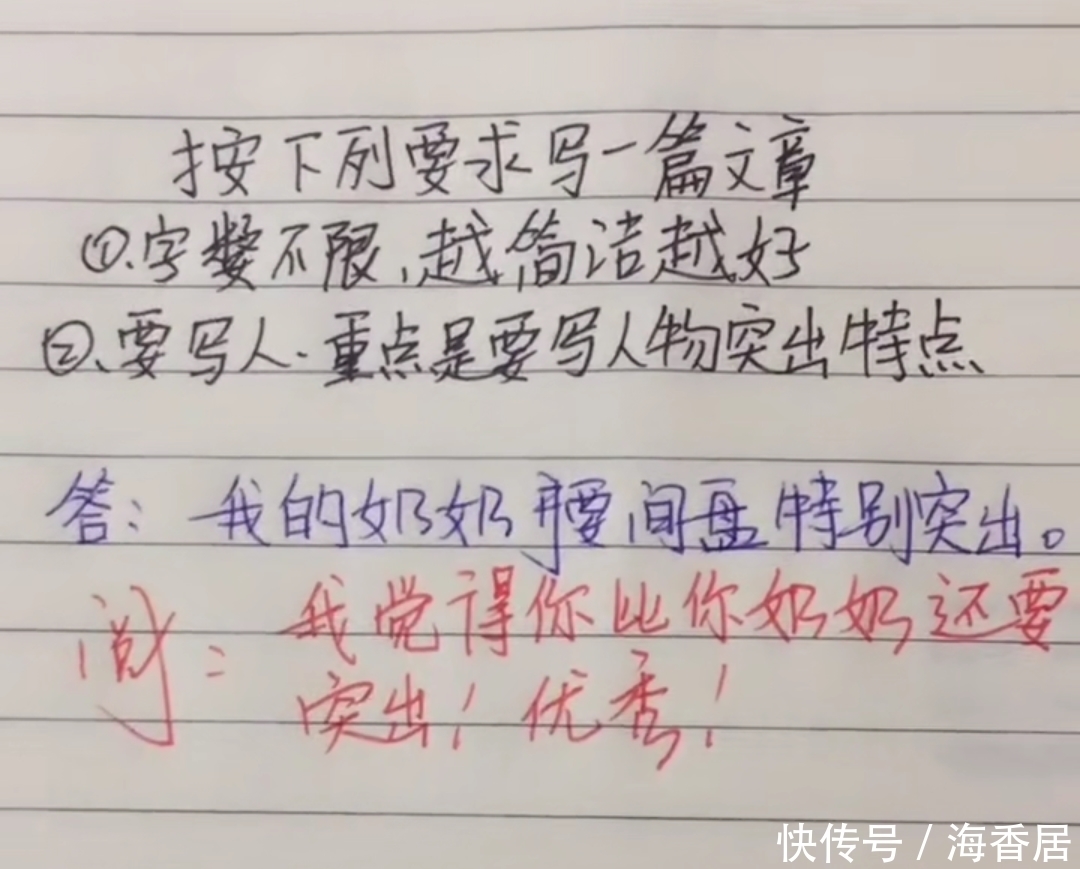 按下列要求写一篇文章
①.字数不限,越简洁越好
②.要写人.重点是要写人物突出特点
答:我的奶奶腰间盘特别突出。
阅:我觉得你比你奶奶还要
突出!优秀!
快传号/海香居